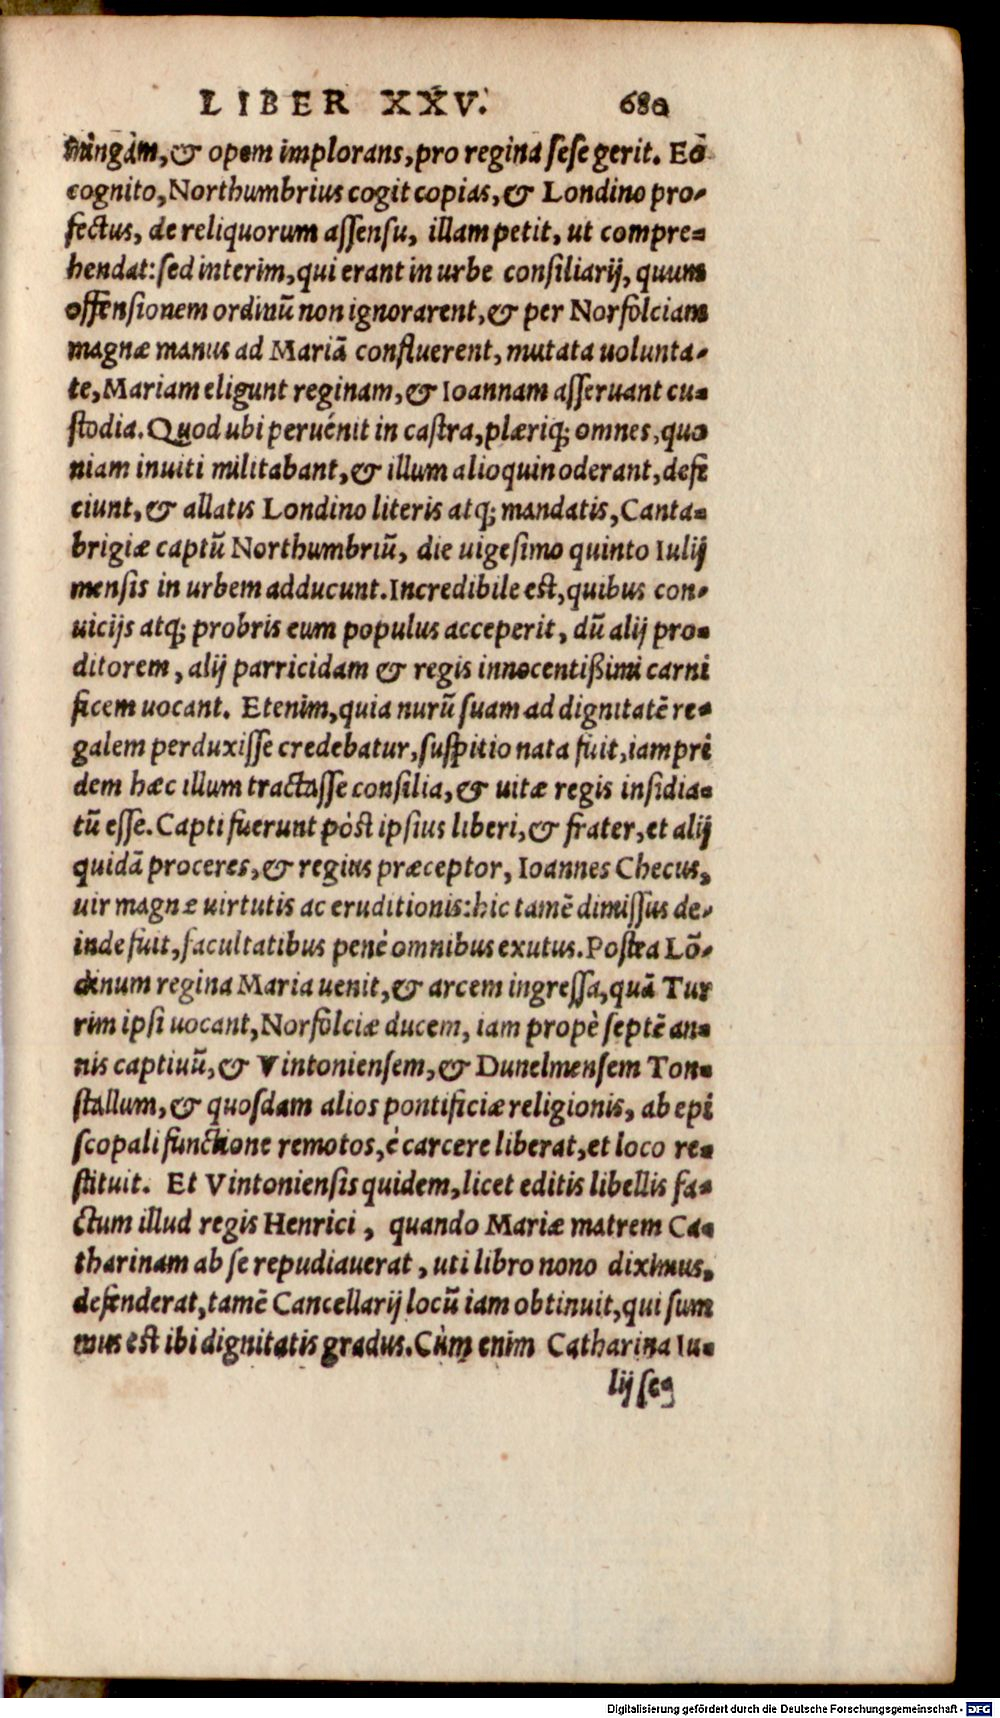 LIBER XXV. 680
mingam, & opem implorans, pro regina sese gerit. Eo
cognito, Northumbrius cogit copias, & Londino pro-
fectus, de reliquorum assensu, illam petit, ut compre-
hendat: sed interim, qui erant in urbe consiliarij, quum
offensionem ordinũ non ignorarent, & per Norfolciam
magnæ manus ad Mariã confluerent, mutata uolunta-
te, Mariam eligunt reginam, & Ioannam asseruant cu-
stodia. Quod ubi peruénit in castra, plæriq; omnes, quo
niam inuiti militabant, & illum alioquin oderant, defi
ciunt, & allatis Londino literis atq; mandatis, Canta-
brigiæ captũ Northumbriũ, die uigesimo quinto Iulij
mensis in urbem adducunt. Incredibile est, quibus con-
uicijs atq; probris eum populus acceperit, dũ alij pro-
ditorem, alij parricidam & regis innocentißimi carni
ficem uocant. Etenim, quia nurũ suam ad dignitatẽ re-
galem perduxisse credebatur, suspitio nata fuit, iampri
dem hæc illum tractasse consilia, & uitæ regis insidia-
tũ esse. Capti fuerunt pòst ipsius liberi, & frater, et alij
quidã proceres, & regius præceptor, Ioannes Checus,
uir magnæ uirtutis ac eruditionis: hic tamẽ dimissus de-
inde fuit, facultatibus penè omnibus exutus. Postea Lõ-
dinum regina Maria uenit, & arcem ingressa, quã Tur
rim ipsi uocant, Norfolciæ ducem, iam propè septẽ an-
nis captiuũ, & Vintoniensem, & Dunelmensem Ton-
stallum, & quosdam alios pontificiæ religionis, ab epi
scopali functione remotos, è carcere liberat, et loco re-
stituit. Et Vintoniensis quidem, licet editis libellis fa-
ctum illud regis Henrici, quando Mariæ matrem Ca-
tharinam ab se repudiauerat, uti libro nono diximus,
defenderat, tamẽ Cancellarij locũ iam obtinuit, qui sum
mus est ibi dignitatis gradus. Cùm enim Catharina Iu-
lij seq
Digitalisierung gefördert durch die Deutsche Forschungsgemeinschaft - DFG